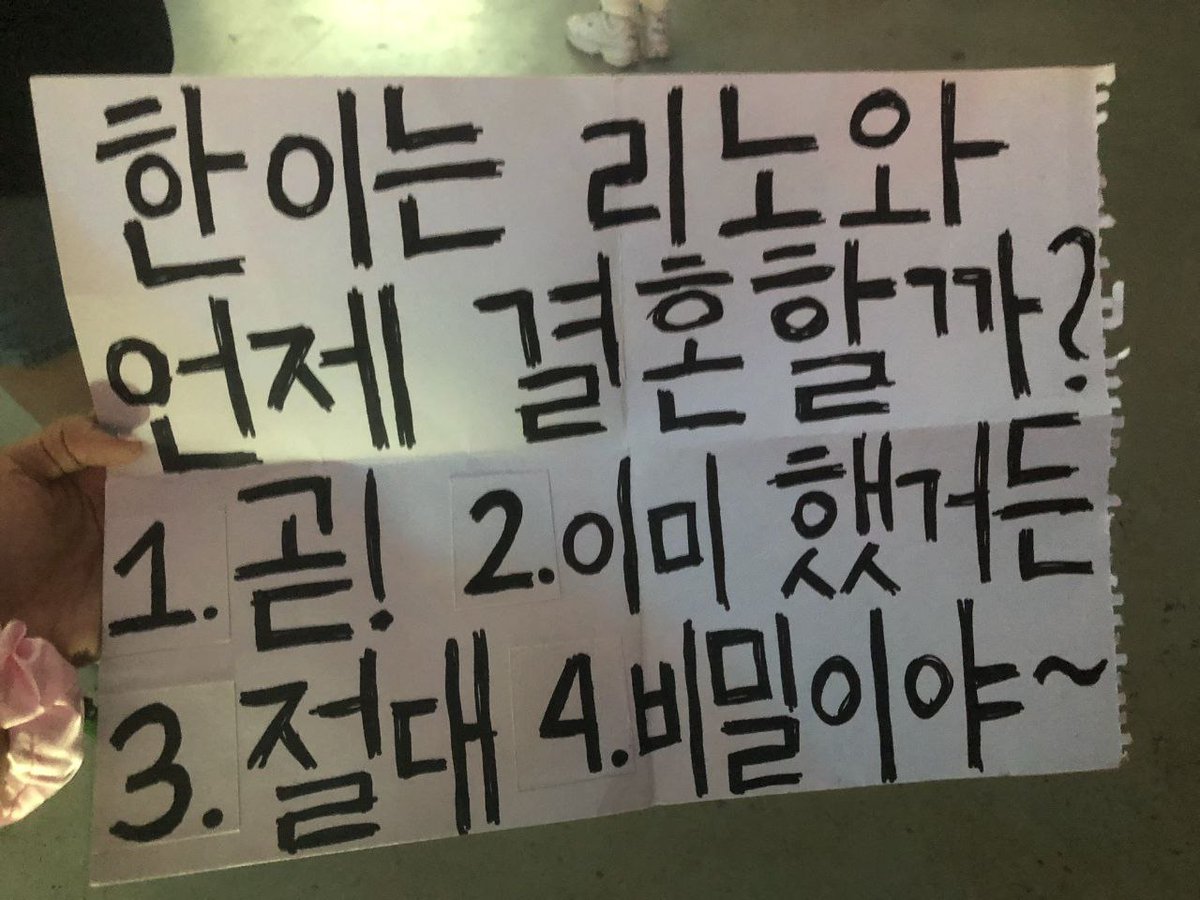 한이는 리노와
언제 결혼할까?
1. 곧! 2. 이미 했거든
3. 절대 4. 비밀이야~